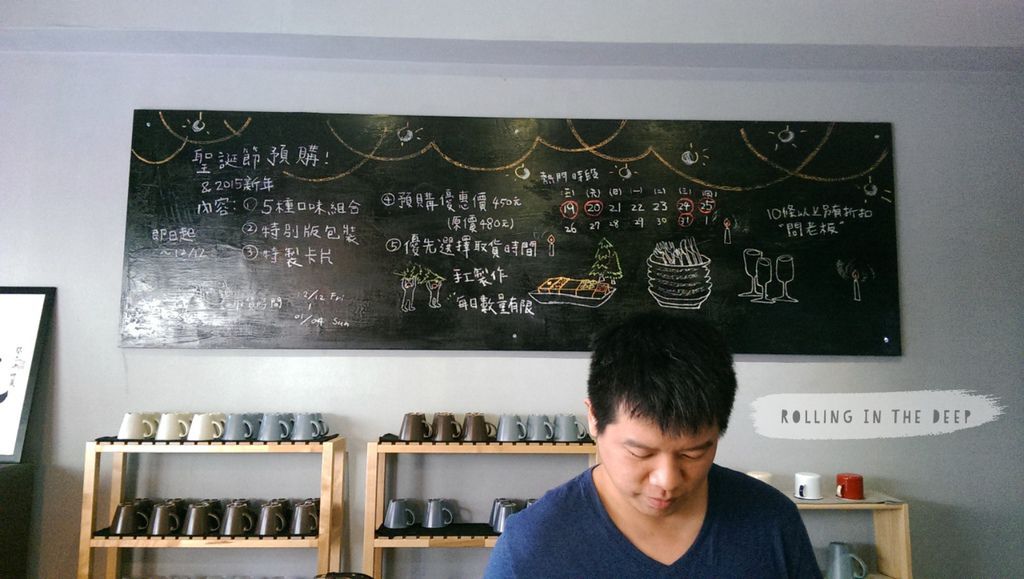 聖誕節預購!
&2015新年
內容: ① 5種口味組合
② 特別版包裝
③ 特製卡片
即日起
~12/12
12/12 Fri
01/04 Sun
④ 預購優惠價 450元
(原價480元)
⑤ 優先選擇取貨時間
手工製作
每日數量有限
熱門時段
(五) (六) (日) (一) (二) (三) (四)
19 20 21 22 23 24 25
26 27 28 29 30 31 1
10條以上另有折扣
"問老板"
ROLLING IN THE DEEP